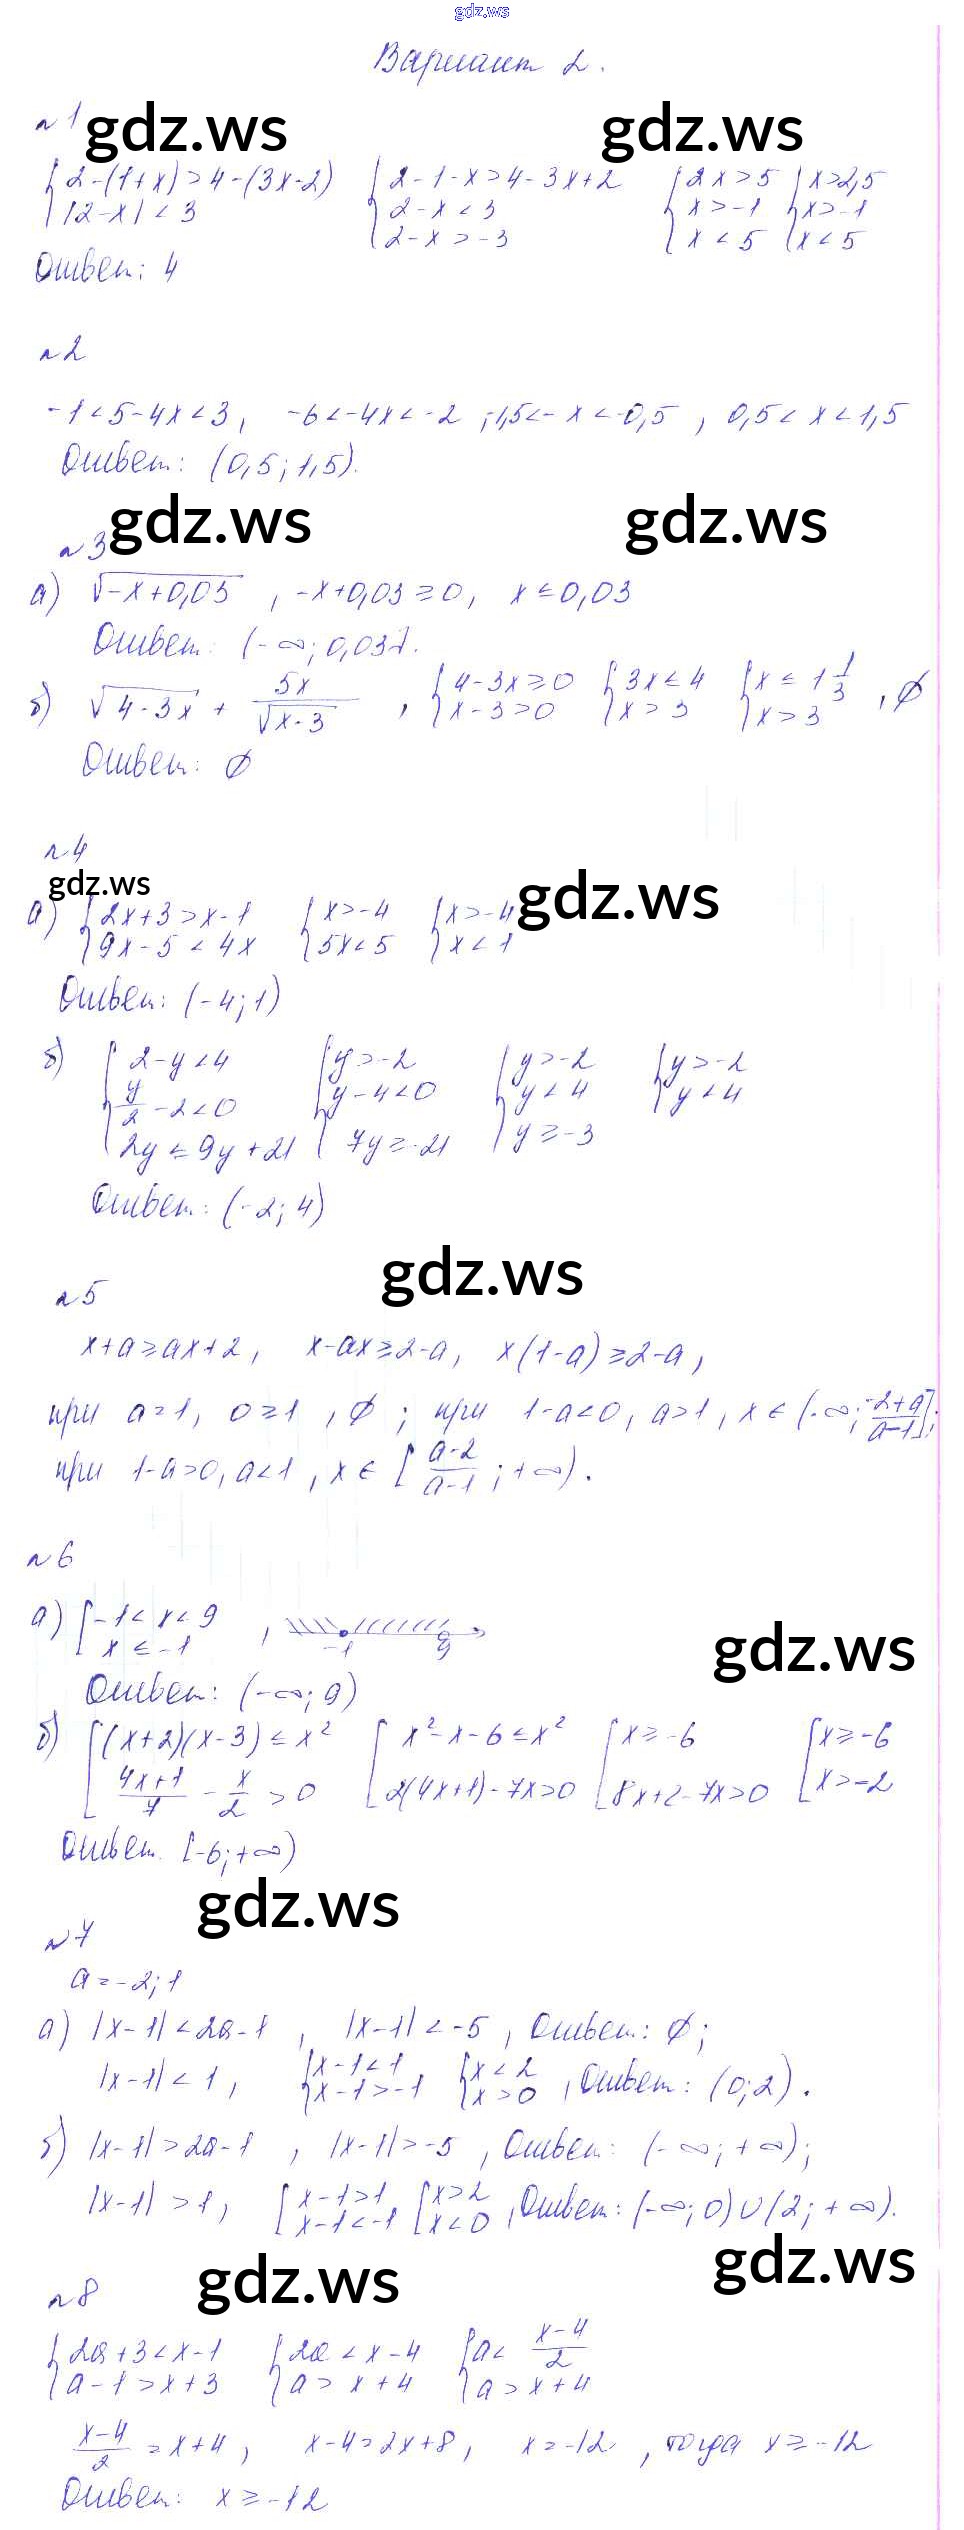 gdz.ws
Вариант 2.
№1 gdz.ws gdz.ws
{2-(1+x)>4-(3x-2) {2-1-x>4-3x+2 {2x>5 {x>2,5
|2-x|<3 2-x<3 x>-1 x>-1
2-x>-3 x<5 x<5
Ответ: 4
№2
-1<5-4x<3, -6<-4x<-2, -1,5<-x<-0,5, 0,5<x<1,5
Ответ: (0,5; 1,5).
№3 gdz.ws gdz.ws
а) √(-x+0,03), -x+0,03≥0, x≤0,03
Ответ: (-∞; 0,03].
б) √(4-3x) + 5x/√(x-3), {4-3x≥0 {3x≤4 {x≤1 1/3, ∅
x-3>0 x>3 x>3
Ответ: ∅
№4
gdz.ws gdz.ws
а) {2x+3>x-1 {x>-4 {x>-4
9x-5<4x 5x<5 x<1
Ответ: (-4; 1)
б) {2-y<4 {y>-2 {y>-2 {y>-2
y/2-2<0 y-4<0 y<4 y<4
2y≤9y+21 7y≥-21 y≥-3
Ответ: (-2; 4)
gdz.ws
№5
x+a≥ax+2, x-ax≥2-a, x(1-a)≥2-a,
при a=1, 0≥1, ∅; при 1-a<0, a>1, x∈(-∞; (-2+a)/(a-1)];
при 1-a>0, a<1, x∈[(a-2)/(a-1); +∞).
№6
а) [-1<x<9
x≤-1 , -1 9
gdz.ws
Ответ: (-∞; 9)
б) [(x+2)(x-3)≤x² [x²-x-6≤x² [x≥-6 [x≥-6
(4x+1)/7 - x/2>0 2(4x+1)-7x>0 8x+2-7x>0 x>-2
Ответ. [-6; +∞)
gdz.ws
№7
a=-2; 1
а) |x-1|<2a-1, |x-1|<-5, Ответ: ∅;
|x-1|<1, {x-1<1 {x<2
x-1>-1, x>0, Ответ: (0; 2).
б) |x-1|>2a-1, |x-1|>-5, Ответ: (-∞; +∞);
|x-1|>1, [x-1>1 [x>2
x-1<-1, x<0, Ответ: (-∞; 0)∪(2; +∞).
gdz.ws gdz.ws
№8
{2a+3<x-1 {2a<x-4 {a<(x-4)/2
a-1>x+3 a>x+4 a>x+4
(x-4)/2=x+4, x-4=2x+8, x=-12, тогда x≥-12
Ответ: x≥-12